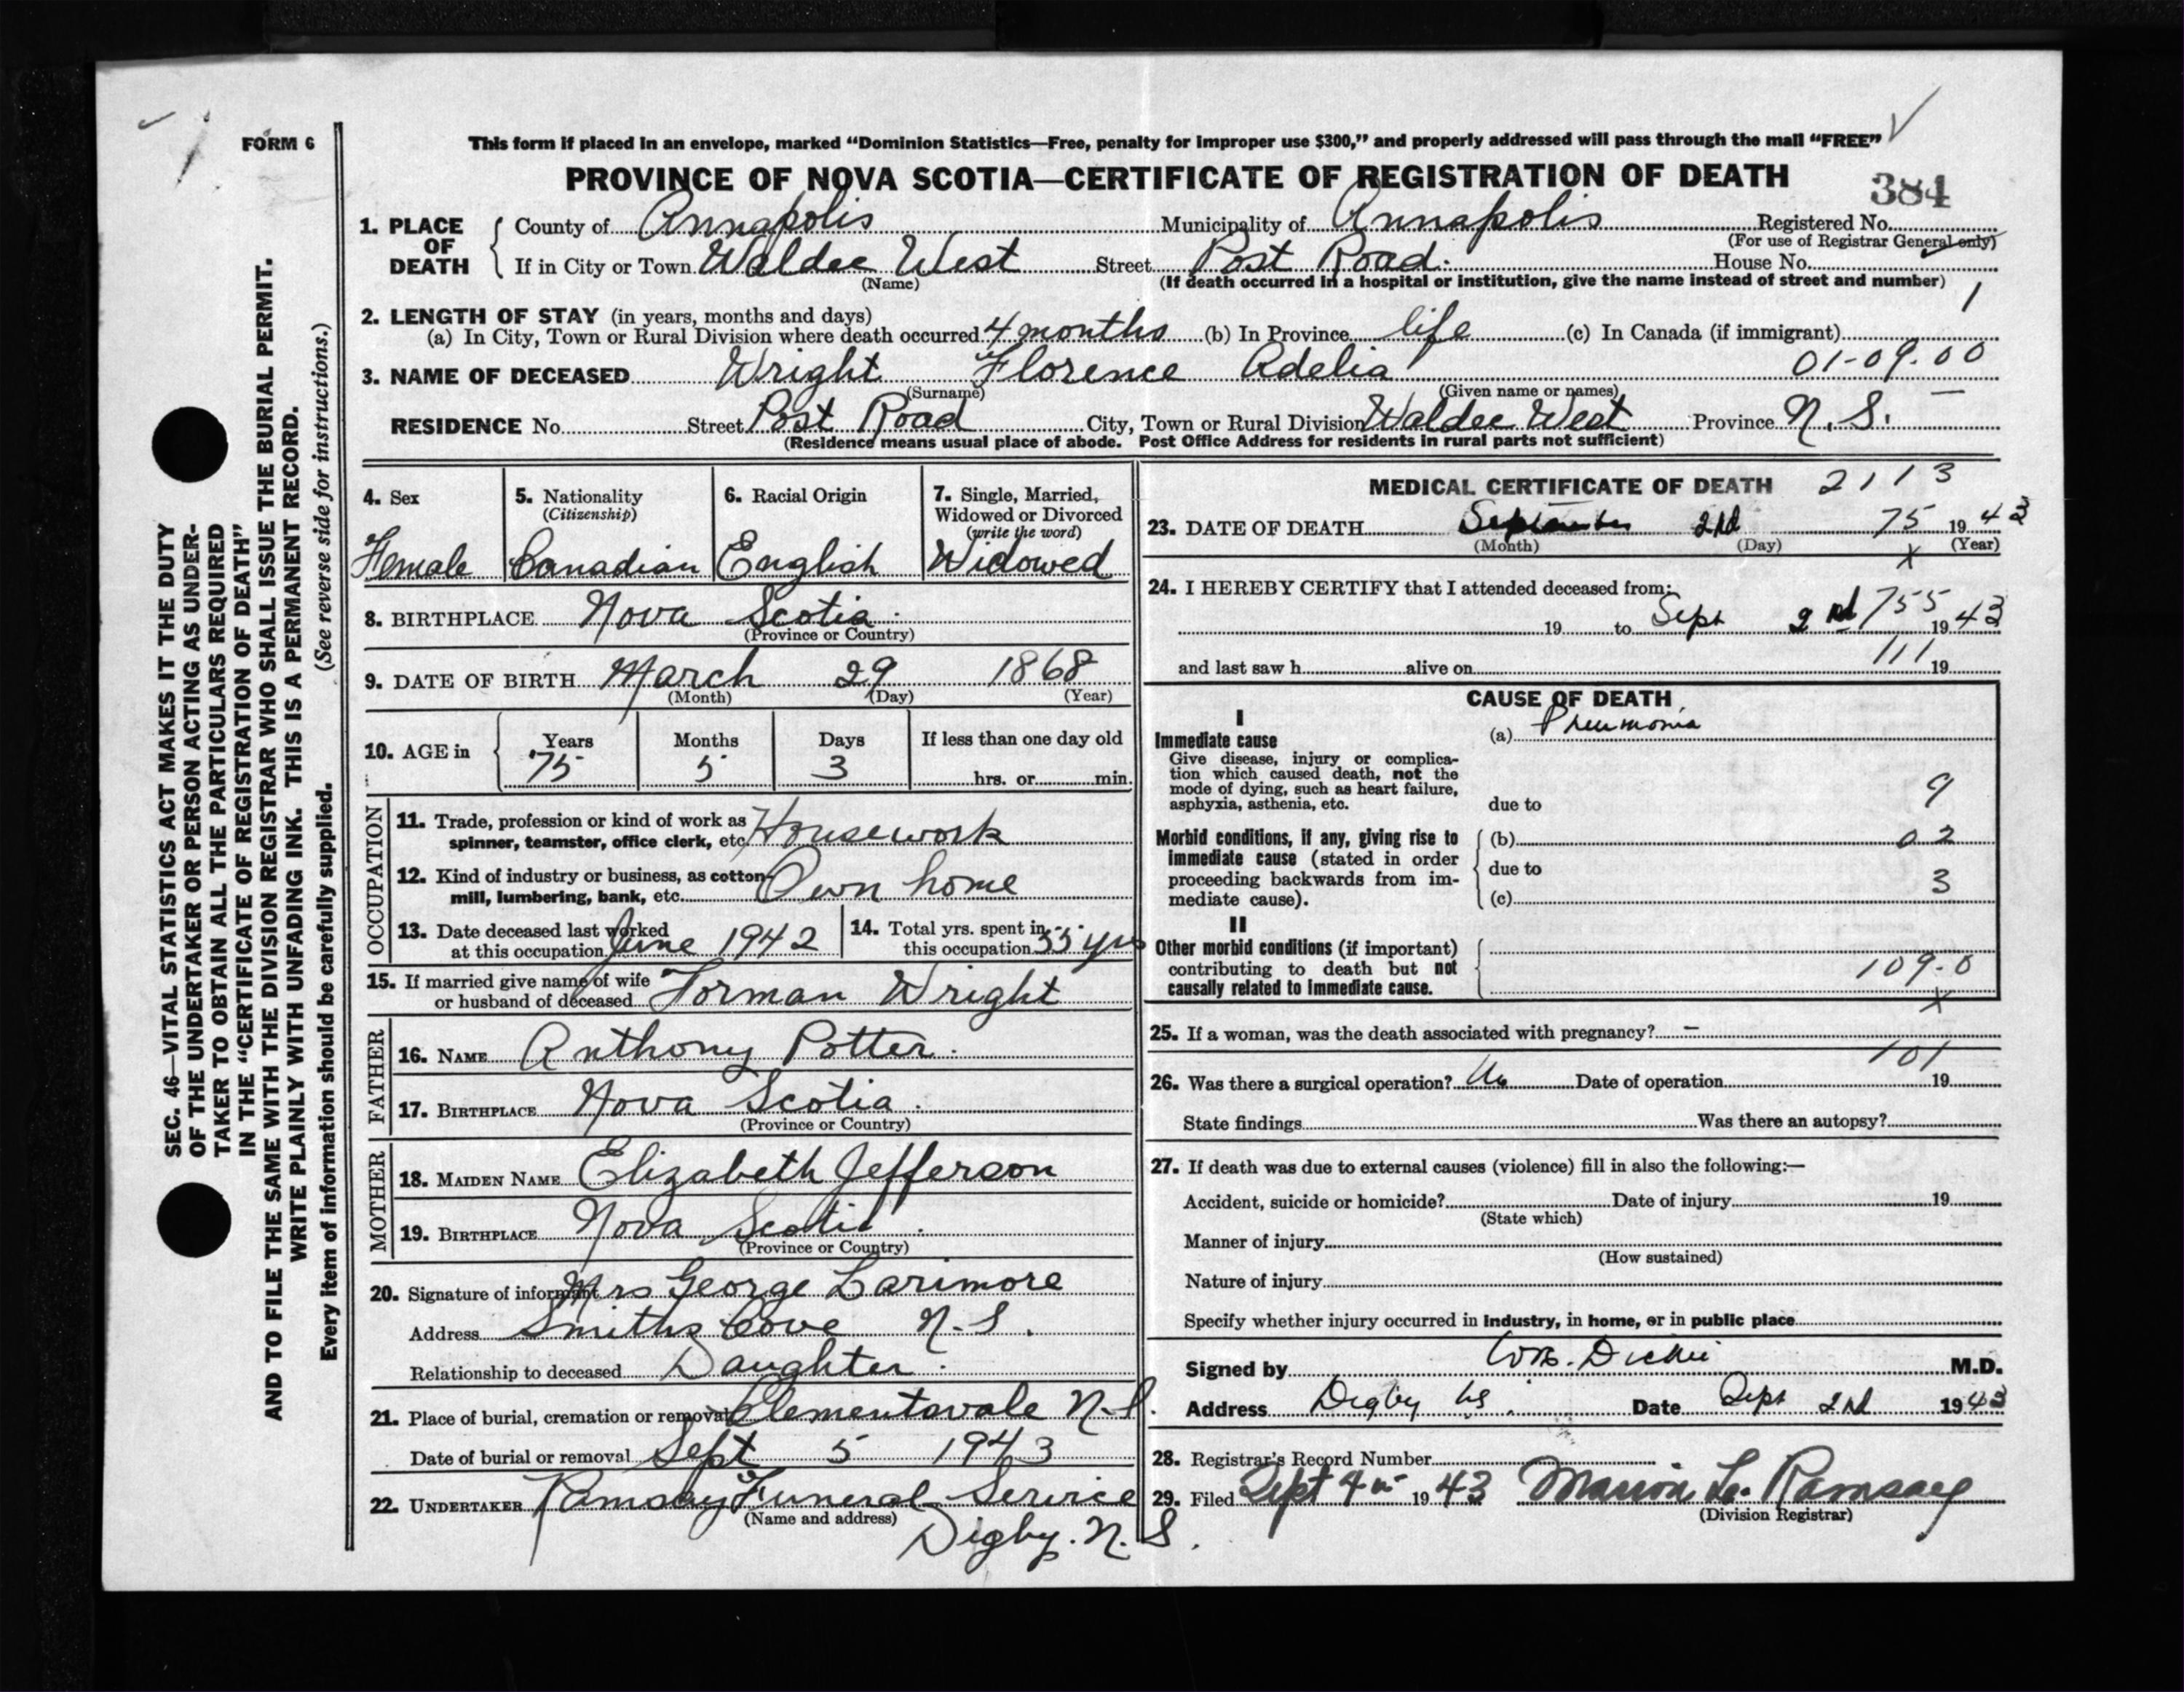 FORM 6
This form if placed in an envelope, marked “Dominion Statistics—Free, penalty for improper use $300,” and properly addressed will pass through the mail “FREE”
PROVINCE OF NOVA SCOTIA—CERTIFICATE OF REGISTRATION OF DEATH
384
1. PLACE OF DEATH
County of Annapolis Municipality of Annapolis Registered No.
(For use of Registrar General only)
If in City or Town Waldec West Street Post Road. House No.
(Name) (If death occurred in a hospital or institution, give the name instead of street and number)
1
2. LENGTH OF STAY (in years, months and days)
(a) In City, Town or Rural Division where death occurred 4 months (b) In Province life (c) In Canada (if immigrant)
01-09.00
3. NAME OF DECEASED Wright Florence Adelia
(Surname) (Given name or names)
RESIDENCE No. Street Post Road City, Town or Rural Division Waldec West Province N.S.
(Residence means usual place of abode. Post Office Address for residents in rural parts not sufficient)
SEC. 46—VITAL STATISTICS ACT MAKES IT THE DUTY
OF THE UNDERTAKER OR PERSON ACTING AS UNDER-
TAKER TO OBTAIN ALL THE PARTICULARS REQUIRED
IN THE “CERTIFICATE OF REGISTRATION OF DEATH”
AND TO FILE THE SAME WITH THE DIVISION REGISTRAR WHO SHALL ISSUE THE BURIAL PERMIT.
WRITE PLAINLY WITH UNFADING INK. THIS IS A PERMANENT RECORD.
Every item of information should be carefully supplied. (See reverse side for instructions.)
4. Sex
Female
5. Nationality
(Citizenship)
Canadian
6. Racial Origin
English
7. Single, Married,
Widowed or Divorced
(write the word)
Widowed
8. BIRTHPLACE Nova Scotia.
(Province or Country)
9. DATE OF BIRTH March 29 1868
(Month) (Day) (Year)
10. AGE in
Years Months Days If less than one day old
75 5 3 hrs. or min.
OCCUPATION
11. Trade, profession or kind of work as
spinner, teamster, office clerk, etc. Housework
12. Kind of industry or business, as cotton-
mill, lumbering, bank, etc. Own home
13. Date deceased last worked
at this occupation June 1942
14. Total yrs. spent in
this occupation 55 yrs
15. If married give name of wife
or husband of deceased Forman Wright
FATHER
16. NAME Anthony Potter.
17. BIRTHPLACE Nova Scotia.
(Province or Country)
MOTHER
18. MAIDEN NAME Elizabeth Jefferson
19. BIRTHPLACE Nova Scotia.
(Province or Country)
20. Signature of informant Mrs George Larimore
Address Smiths Cove N.S.
Relationship to deceased Daughter.
21. Place of burial, cremation or removal Clementsvale N.S.
Date of burial or removal Sept 5 1943
22. UNDERTAKER Ramsay Funeral Service
(Name and address)
Digby. N.S.
MEDICAL CERTIFICATE OF DEATH 2113
23. DATE OF DEATH September 2nd 75 1943
(Month) (Day) (Year)
x
24. I HEREBY CERTIFY that I attended deceased from:
755
19 to Sept 2nd 1943
111
and last saw h alive on 19
CAUSE OF DEATH
I
Immediate cause
Give disease, injury or complica-
tion which caused death, not the
mode of dying, such as heart failure,
asphyxia, asthenia, etc.
(a) Pneumonia
due to 9
Morbid conditions, if any, giving rise to
immediate cause (stated in order
proceeding backwards from im-
mediate cause).
(b) 02
due to
3
(c)
II
Other morbid conditions (if important)
contributing to death but not
causally related to immediate cause.
109-0
x
25. If a woman, was the death associated with pregnancy? –
101
26. Was there a surgical operation? No Date of operation 19
State findings Was there an autopsy?
27. If death was due to external causes (violence) fill in also the following:—
Accident, suicide or homicide? Date of injury 19
(State which)
Manner of injury
(How sustained)
Nature of injury
Specify whether injury occurred in industry, in home, or in public place
Signed by Dickie M.D.
Address Digby NS. Date Sept 2nd 1943
28. Registrar's Record Number
29. Filed Sept 4 1943 Marion Ramsay
(Division Registrar)